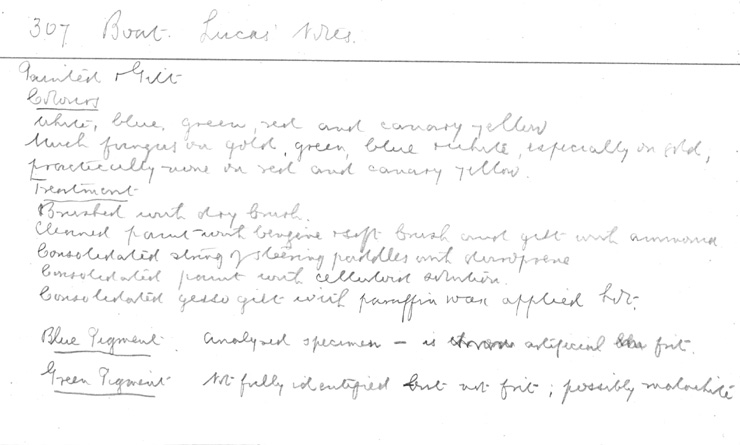 307 Boat. Lucas' Notes.
Painted & Gilt
Colours
White, blue, green, red and canary yellow
Much fungus on gold, green, blue & white, especially on gold,
practically none on red and canary yellow.
Treatment
Brushed with dry brush.
Cleaned paint with benzine & soft brush and gilt with ammonia
Consolidated string of steering paddles with duroprene
Consolidated paint with celluloid solution.
Consolidated gesso gilt with paraffin wax applied hot.
Blue Pigment. Analysed specimen – is artificial frit.
Green Pigment Not fully identified but not frit; possibly malachite